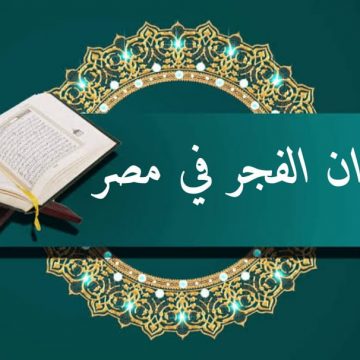 ان الفجر في مصر